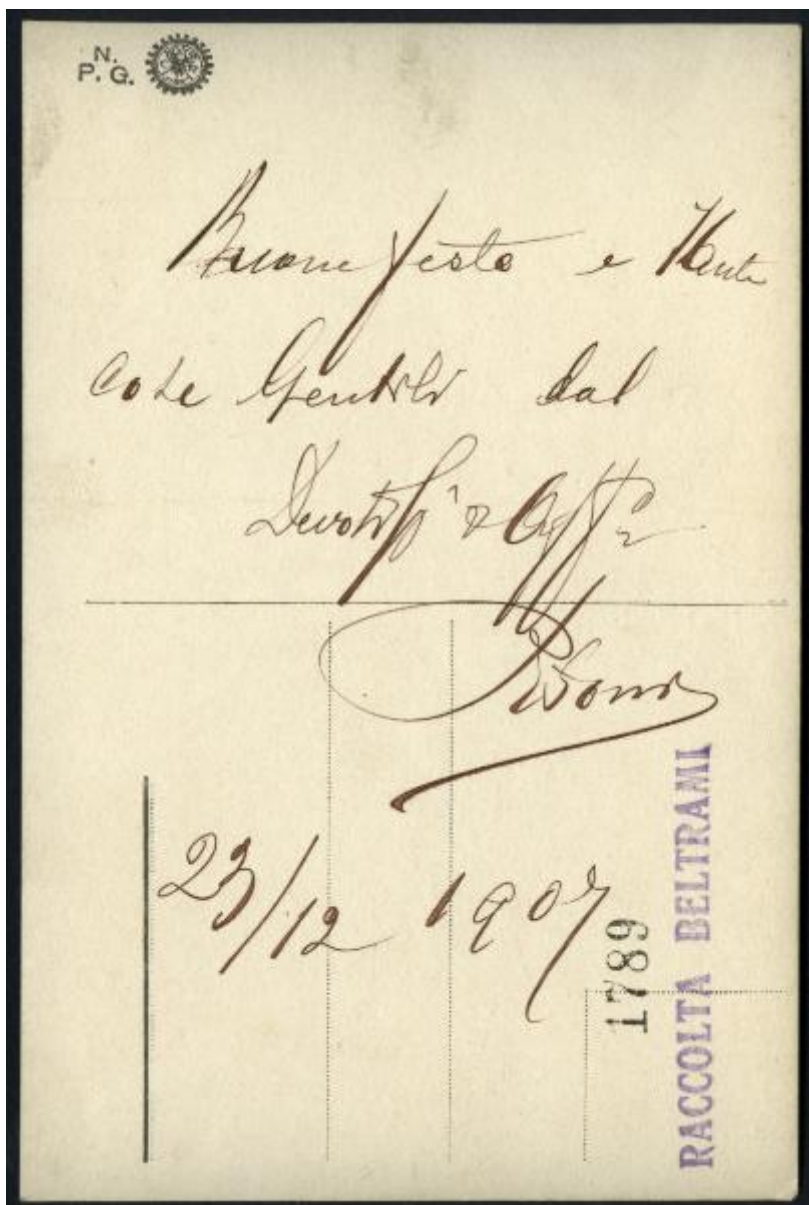 N.
P. G.
Buone feste e tante
cose Gentili dal
Devotiss° & Aff°
Pisoni
23/12 1907
1789
RACCOLTA BELTRAMI